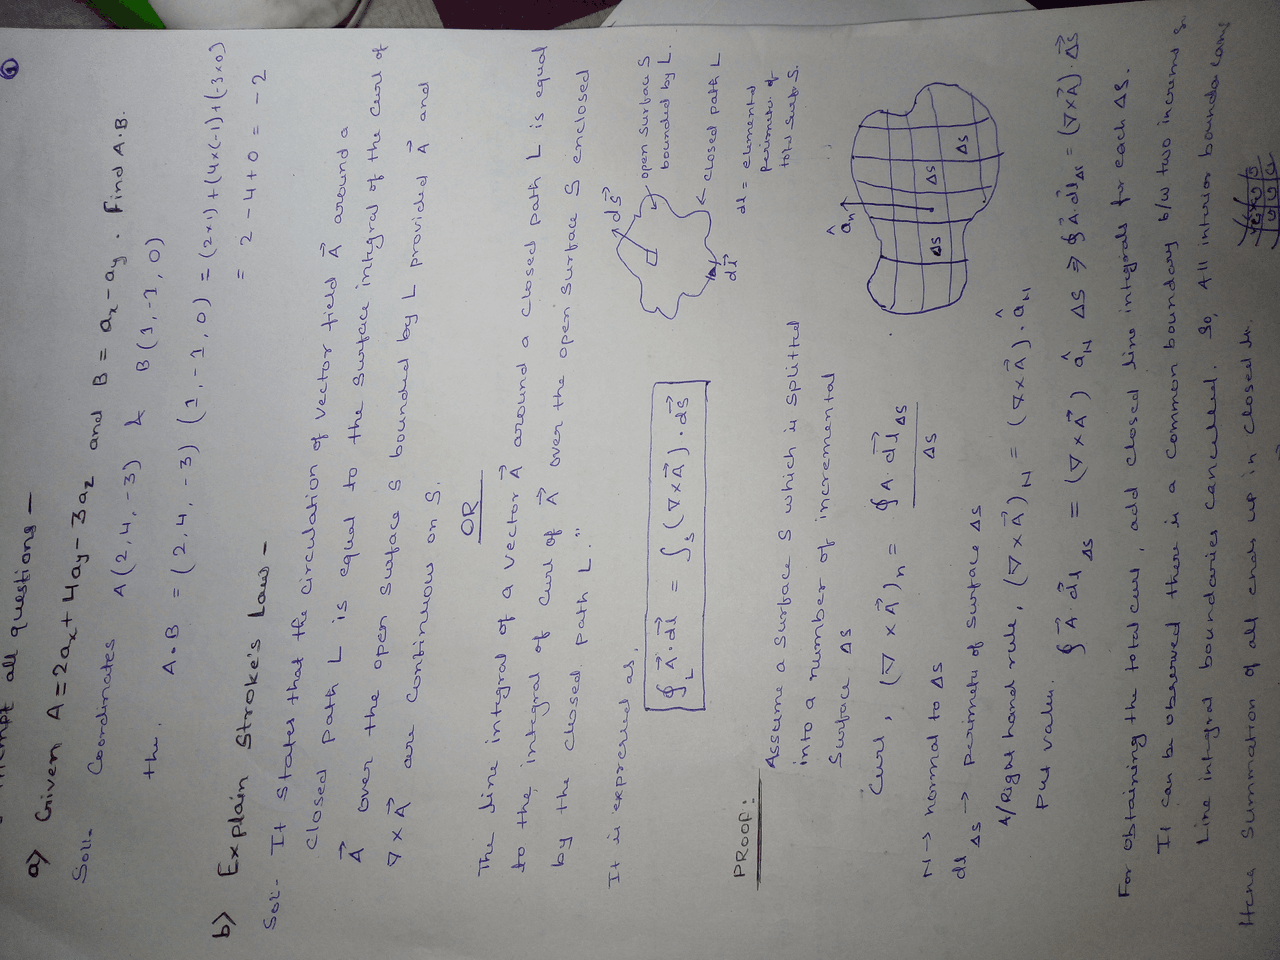 ①
all questions -
a) Given A = 2ax + 4ay - 3az and B = ax - ay. Find A.B.
Sol:- Coordinates A (2, 4, -3) & B (1, -1, 0)
the.
A.B = (2, 4, -3) (1, -1, 0) = (2×1) + (4×(-1)) + (-3×0)
= 2 - 4 + 0 = -2
b) Explain Stroke's Law -
Sol:- It States that the circulation of vector field A⃗ around a
closed path L is equal to the surface integral of the curl of
A⃗ over the open surface S bounded by L provided A⃗ and
∇×A⃗ are continuous on S.
OR
The line integral of a vector A⃗ around a closed path L is equal
to the integral of curl of A⃗ over the open surface S enclosed
by the closed path L."
It is expressed as,
∮L A⃗.dl⃗ = ∫S (∇×A⃗).ds⃗
ds⃗
open surface S
bounded by L.
closed path L
dl⃗
dl = elemental
perimeter of
total surf S.
PROOF:
Assume a surface S which is splitted
into a number of incremental
surface ΔS
Curl, (∇×A⃗)n = ∮A.dl⃗ΔS / ΔS
ân
ΔS ΔS ΔS
N → normal to ΔS
dlΔS → perimeter of surface ΔS
A/Right hand rule, (∇×A⃗)N = (∇×A⃗).âN
Put value.
∮A⃗.dlΔS = (∇×A⃗) âN ΔS ⇒ ∮A⃗.dlΔS = (∇×A⃗).ΔS⃗
For obtaining the total curl, add closed line integrals for each ΔS.
It can be observed there is a common boundary b/w two increms
Line integral boundaries cancelled. So, All interior
Hence Summation of all ends up in closed